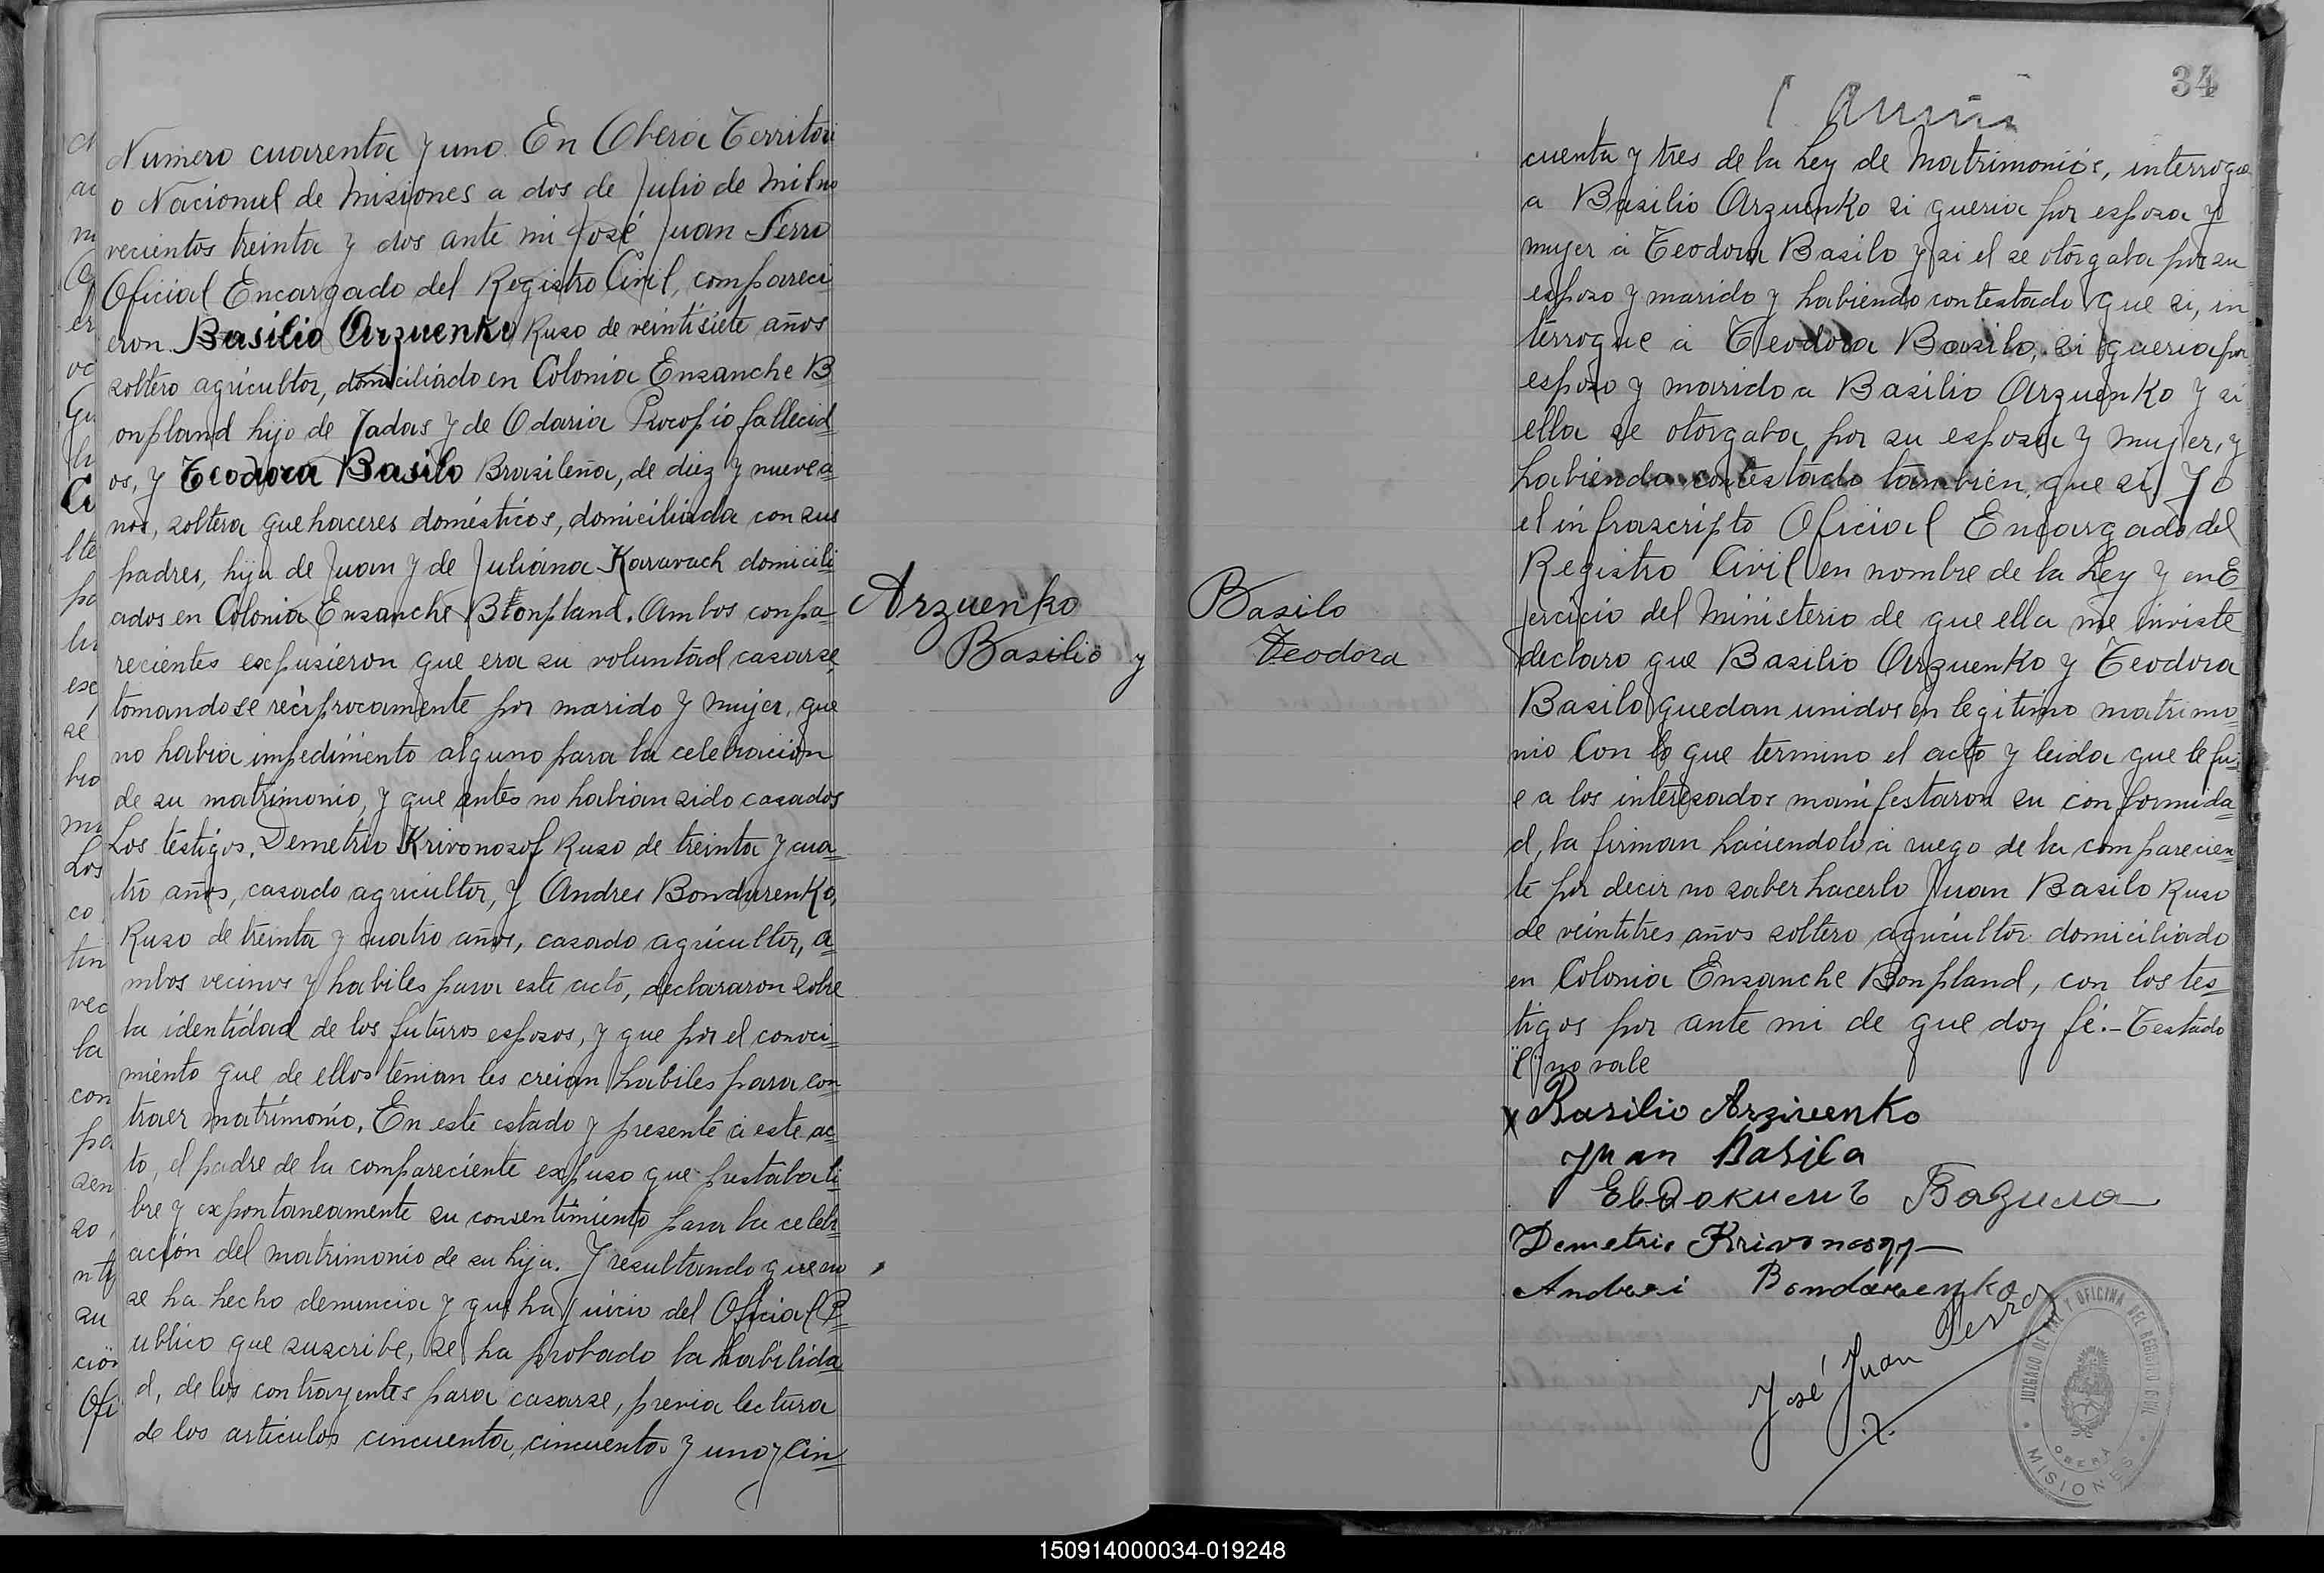 Numero cuarenta y uno. En Oberá Territori
o Nacional de Misiones a dos de Julio de Milno
vecientos treinta y dos ante mi José Juan Ferro
Oficial Encargado del Registro Civil, compareci
eron. Basilio Arzuenko Ruso de veintisiete años
soltero agricultor, domiciliado en Colonia Ensanche B
onpland hijo de Jadas y de Odaria Procopio fallecid=
os, y Teodora Basilo Brasileña, de diez y nuevea=
nos, soltera quehaceres domésticos, domiciliada con sus
padres, hija de Juan y de Juliana Karavach domicili
ados en Colonia Ensanche Blonpland. Ambos conpa=
recientes expusieron que era su voluntad casarse,
tomandose reciprocamente por marido y mujer, que
no habia impedimento alguno para la celebracion
de su matrimonio, y que antes no habian sido casados
Los testigos, Demetrio Krivonosof Ruso de treinta y cua=
tro años, casado agricultor, y Andres Bondarenko,
Ruso de treinta y cuatro años, casado agricultor, a=
mbos vecinos y habiles para este acto, declararon sobre
la identidad de los futuros esposos, y que por el conoci=
miento que de ellos tenian les creian habiles para con
traer matrimonio. En este estado y presente a este ac=
to, el padre de la compareciente expuso que prestaba li
bre y expontaneamente su consentimiento para la celebr
ación del matrimonio de su hija. Y resultando que no
se ha hecho denuncia y que ha juicio del Oficial P=
ublico que suscribe, se ha probado la habilida
d, de los contrayentes para casarse, previa lectura
de los articulos cincuenta, cincuenta y uno y Cin=
Arzuenko
Basilio y
Basilo
Teodora
34
cuenta y tres de la Ley de Matrimonios, interrogue
a Basilio Arzuenko si queria por esposa y
mujer a Teodora Basilo y si el se otorgaba por su
esposo y marido y habiendo contestado que si, in
terrogue a Teodora Basilo, si queria por
esposo y marido a Basilio Arzuenko y si
ella se otorgaba por su esposa y mujer, y
habiendo contestado tambien que si, Yo
el infrascripto Oficial Encargado del
Registro Civil en nombre de la Ley y en E
jercicio del Ministerio de que ella me inviste
declaro que Basilio Arzuenko y Teodora
Basilo quedan unidos en legitimo matrimo=
nio Con lo que termino el acto y leida que le fu=
e a los interesados manifestaron su conformida=
d, la firman haciendolo a ruego de la comparecien=
te por decir no saber hacerlo Juan Basilo Ruso
de veintitres años soltero agricultor domiciliado
en Colonia Ensanche Bonpland, con los tes=
tigos por ante mi de que doy fé.- Testado
"l" no vale
x Basilio Arzivenko
Juan Basila
Demetrio Krivonosof
Andrei Bondarenko
José Juan Ferro
JUZGADO DE PAZ Y OFICINA DEL REGISTRO CIVIL
OBERÁ
MISIONES
150914000034-019248